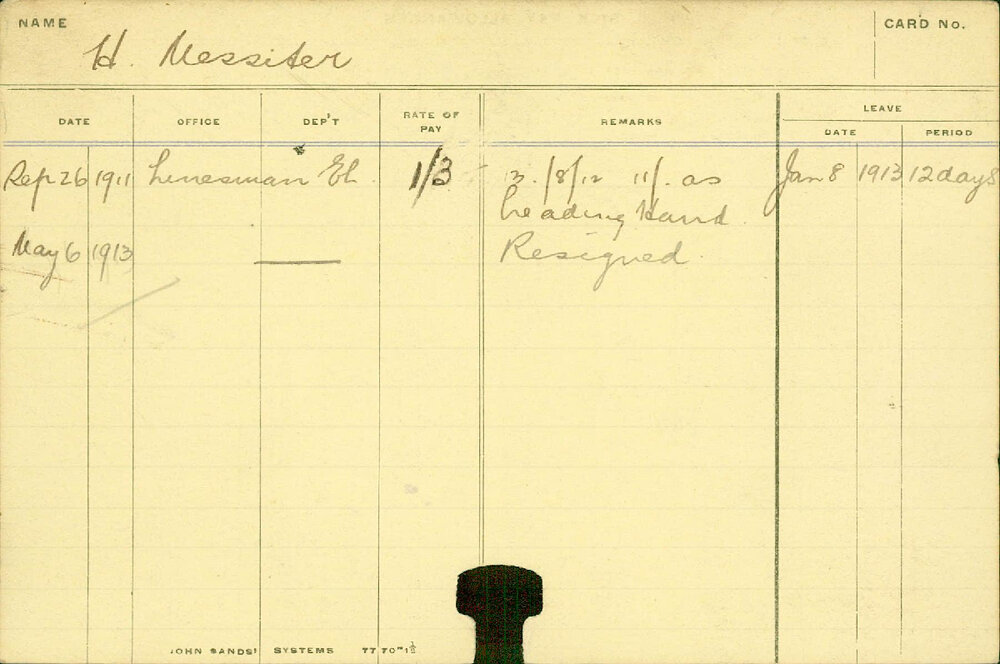 NAME
H. Messiter
CARD No.
DATE OFFICE DEP'T RATE OF PAY REMARKS LEAVE
DATE PERIOD
Sep 26 1911 Linesman El. 1/3 - 13/8/12 11/- as Jan 8 1913 12 days
Leading Hand
May 6 1913 Resigned
JOHN SANDS' SYSTEMS